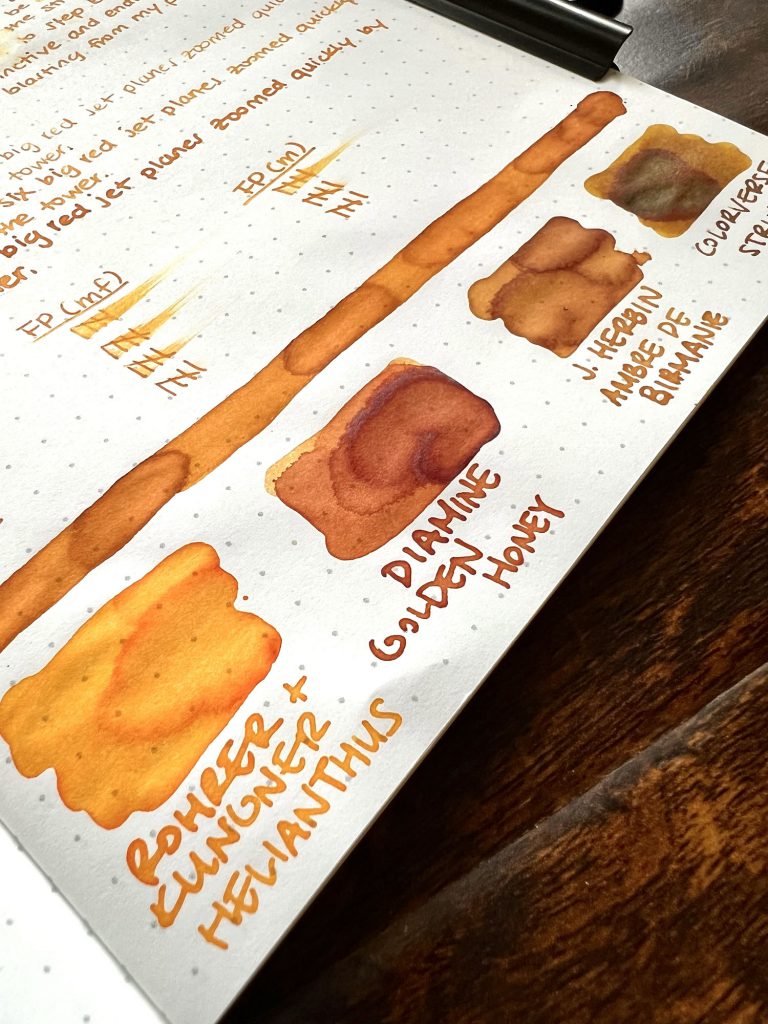 be
the
to step
inctive and end
blasting from my
big red jet planes zoomed quickly
tower.
six big red jet planes zoomed quickly
the tower.
big red jet planes zoomed quickly by
FP (m)
FP (mf)
COLORVERSE
J. HERBIN
AMBRE DE
BIRMANIE
DIAMINE
GOLDEN
HONEY
ROHRER +
KLINGNER
HELIANTHUS